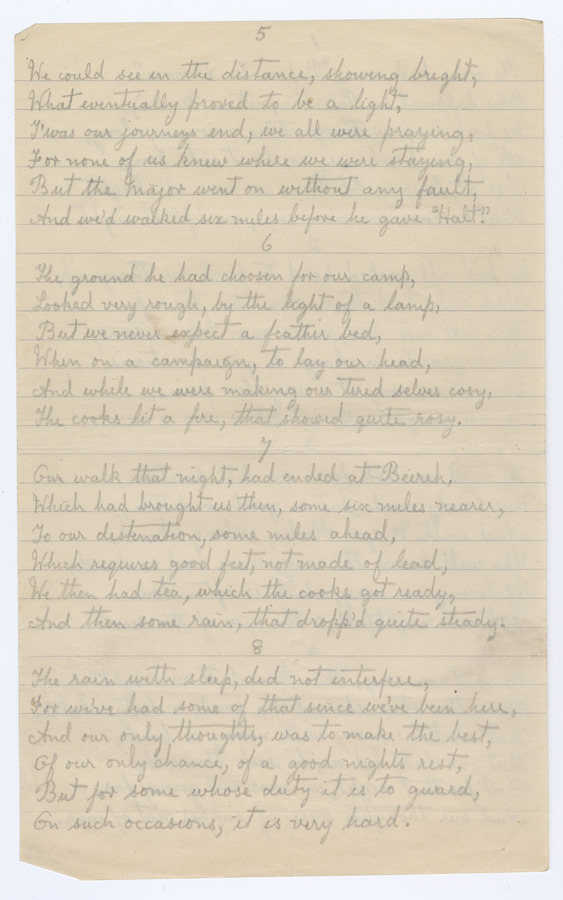 5
We could see in the distance, showing bright,
What eventually proved to be a light,
T'was our journeys end, we all were praying,
For none of us knew where we were staying,
But the Major went on without any fault,
And we'd walked six miles before he gave "Halt!"
6
The ground he had choosen for our camp,
Looked very rough, by the light of a lamp,
But we never expect a feather bed,
When on a campaign, to lay our head,
And while we were making our tired selves cosy,
The cooks lit a fire, that showed quite rosy.
7
Our walk that night, had ended at Beireh,
Which had brought us then, some six miles nearer,
To our destination, some miles ahead,
Which requires good feet, not made of lead,
We then had tea, which the cooks got ready,
And then some rain, that dropp'd quite steady.
8
The rain with sleep, did not interfere,
For we've had some of that since we've been here,
And our only thoughts, was to make the best,
Of our only chance, of a good nights rest,
But for some whose duty it is to guard,
On such occasions, it is very hard.